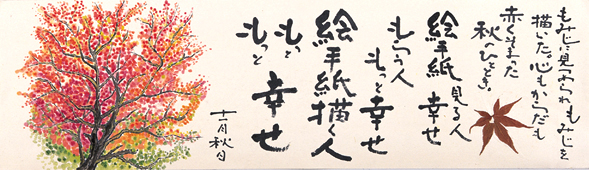 もみじに見つめられもみじを
描いた。心もからだも
赤くそまった
秋のひととき。
絵手紙見る人
幸せ
もらう人
もっと幸せ
絵手紙描く人
もっと
もっと
幸せ
十一月秋日